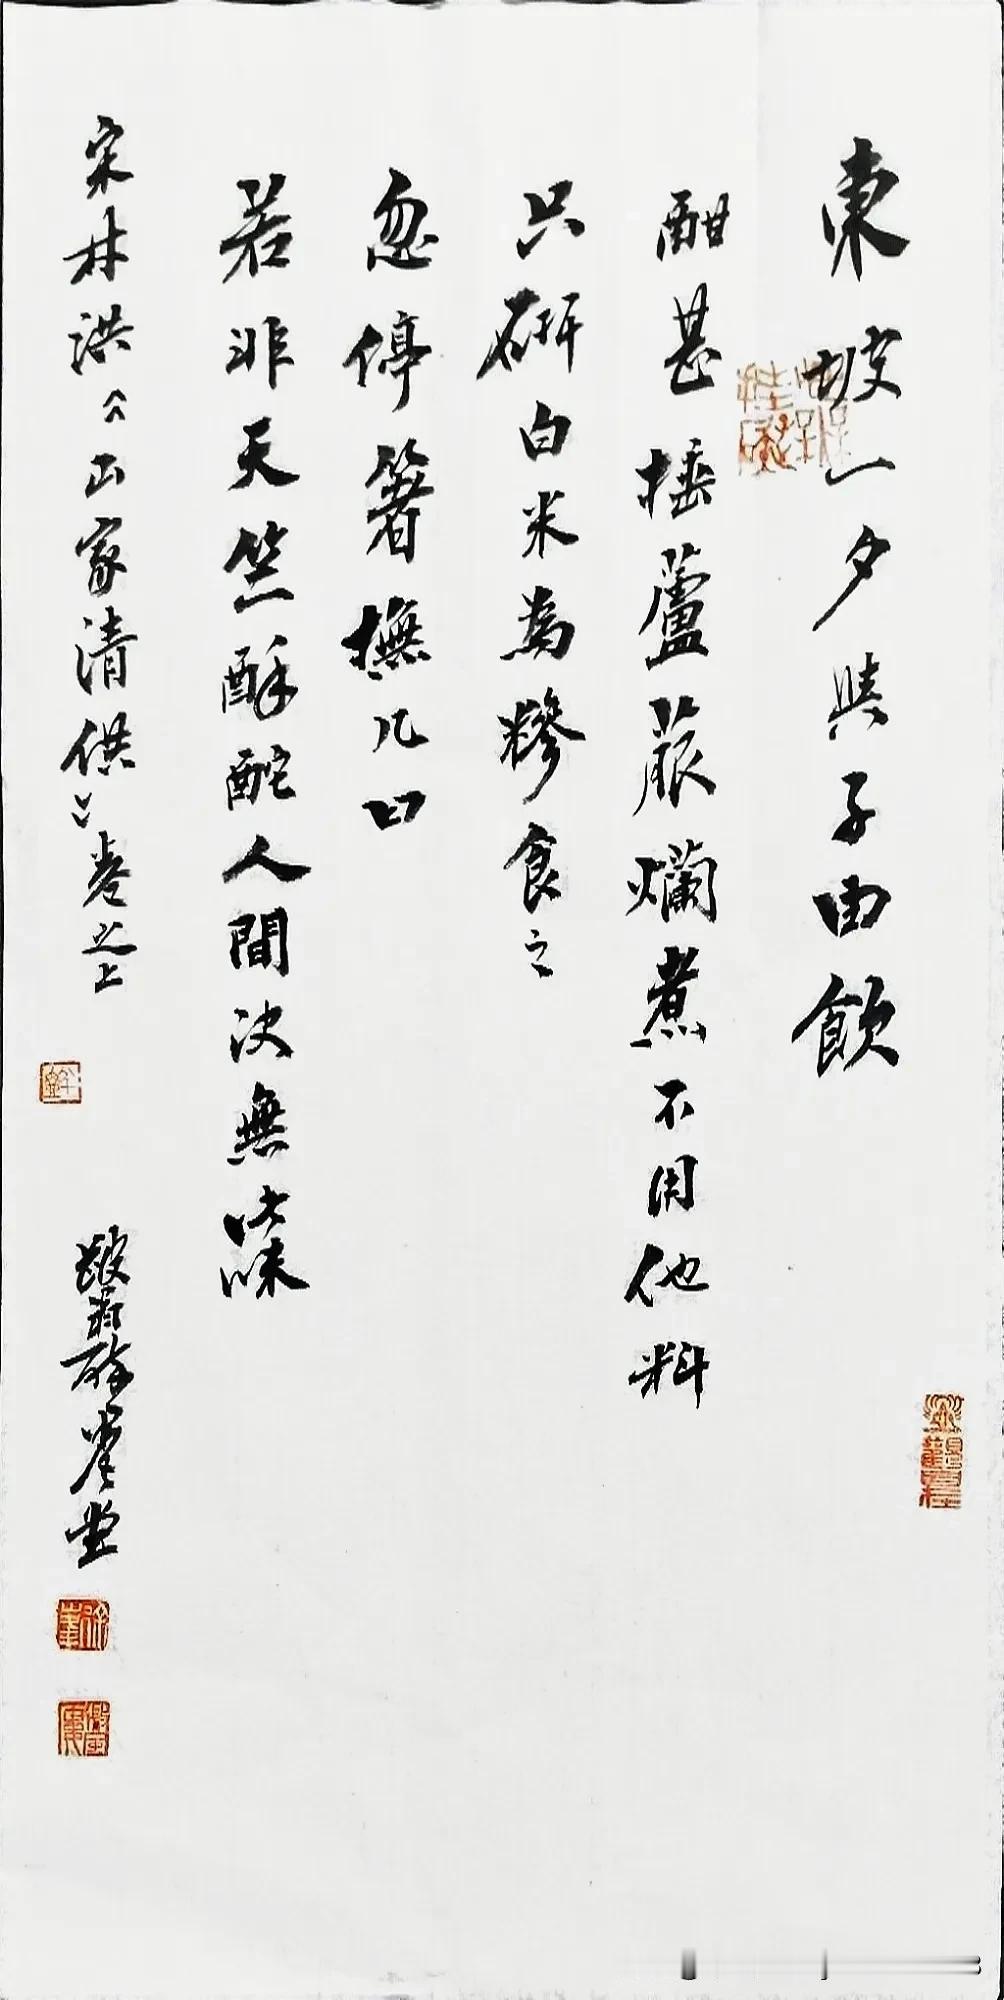 東坡一夕與子由飲
酣甚捶蘆菔爛煮不用他料
只研白米為糝食之
忽停箸撫几曰
若非天竺酥酡人間決無此味
宋林洪《山家清供》卷之上